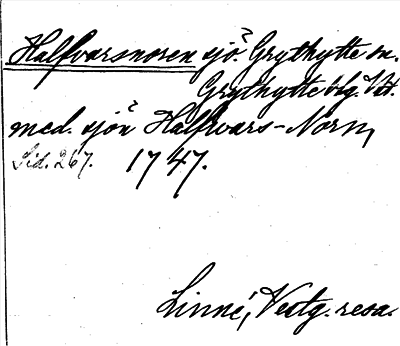 Halfvarsnoren sjö. Grythytte sn.
Grythytte blg. Vstm.
med. sjön Halfvars-Norn,
Sid. 267. 1747.
Linné, Vestg. resa.